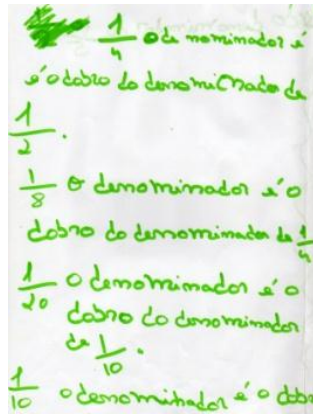 1/4 o de nominador é
é o dobro do denominador de
1/2.
1/8 o denominador é o
dobro do denominador de 1/4
1/20 o denominador é o
dobro do denominador
de 1/10.
1/10 o denominador é o dobr